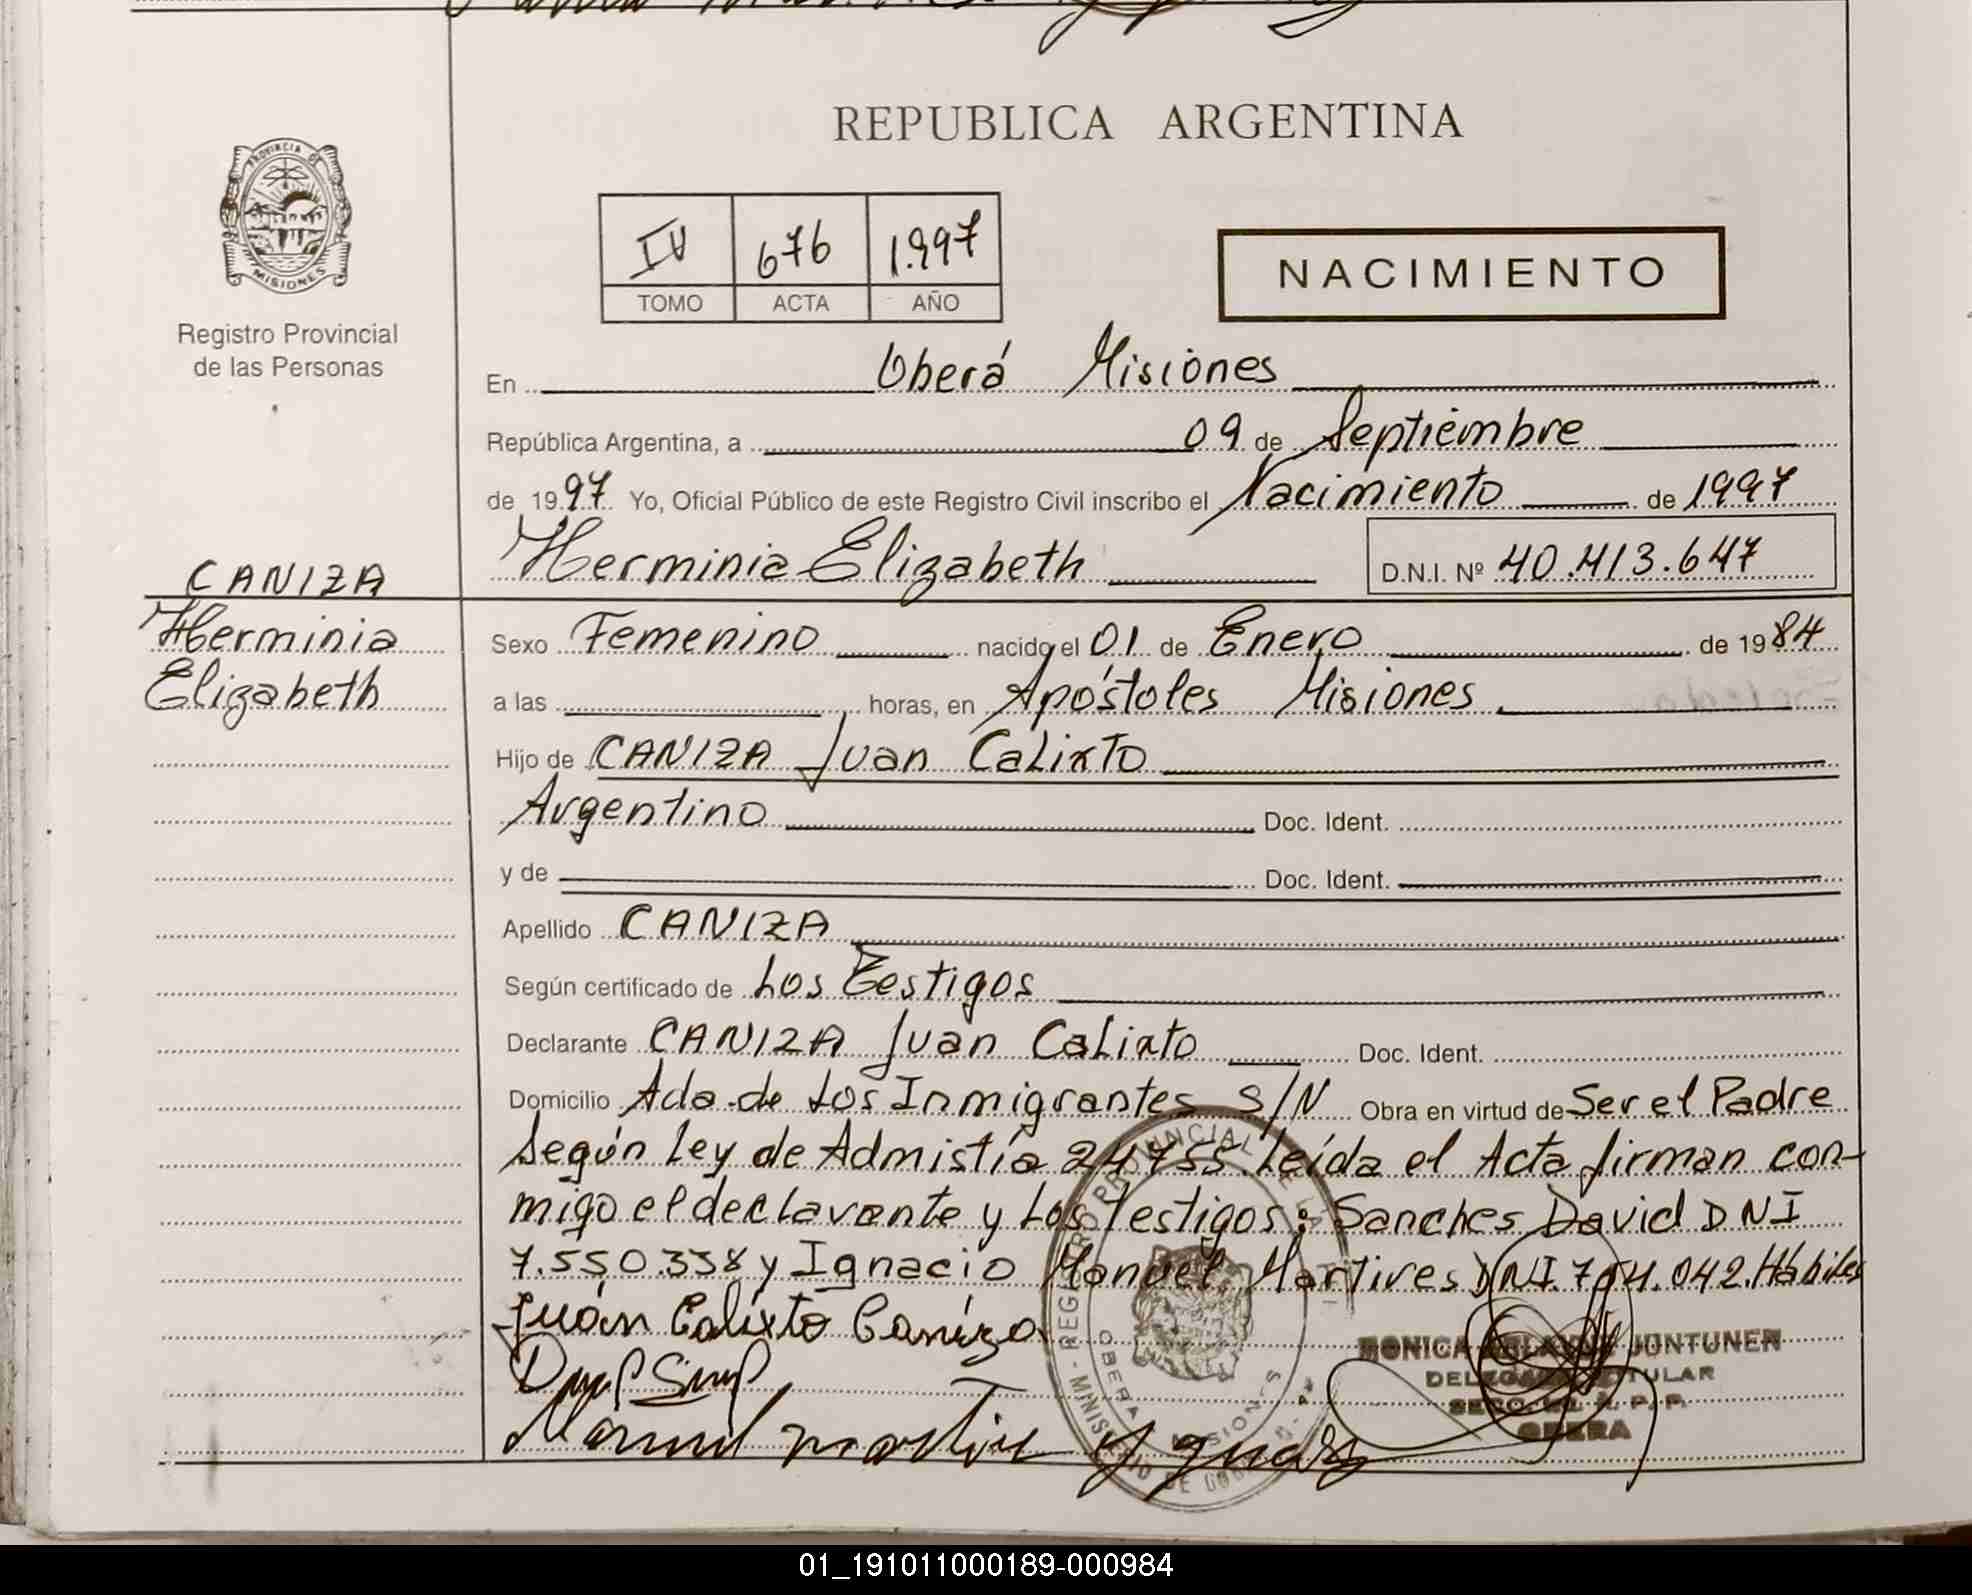 REPUBLICA ARGENTINA
PROVINCIA DE
MISIONES
Registro Provincial
de las Personas
IV 676 1.997
TOMO ACTA AÑO
NACIMIENTO
En Oberá Misiones
República Argentina, a 09 de Septiembre
de 1997 Yo, Oficial Público de este Registro Civil inscribo el Nacimiento de 1997
Herminia Elizabeth D.N.I. Nº 40.413.647
CANIZA
Herminia
Elizabeth
Sexo Femenino nacido el 01 de Enero de 1984
a las horas, en Apóstoles Misiones
Hijo de CANIZA Juan Calixto
Argentino Doc. Ident.
y de Doc. Ident.
Apellido CANIZA
Según certificado de Los Testigos
Declarante CANIZA Juan Calixto Doc. Ident.
Domicilio Ada de Los Inmigrantes S/N Obra en virtud de Ser el Padre
Según Ley de Admistía 24755. Leída el Acta firman con-
migo el declarante y Los Testigos: Sanches David DNI
7.550.338 y Ignacio Manuel Martires DNI. Hábiles
Juán Calixto Caniza
OBERA
MISIONES
JUNTUNEN
TITULAR
OBERA
01_191011000189-000984